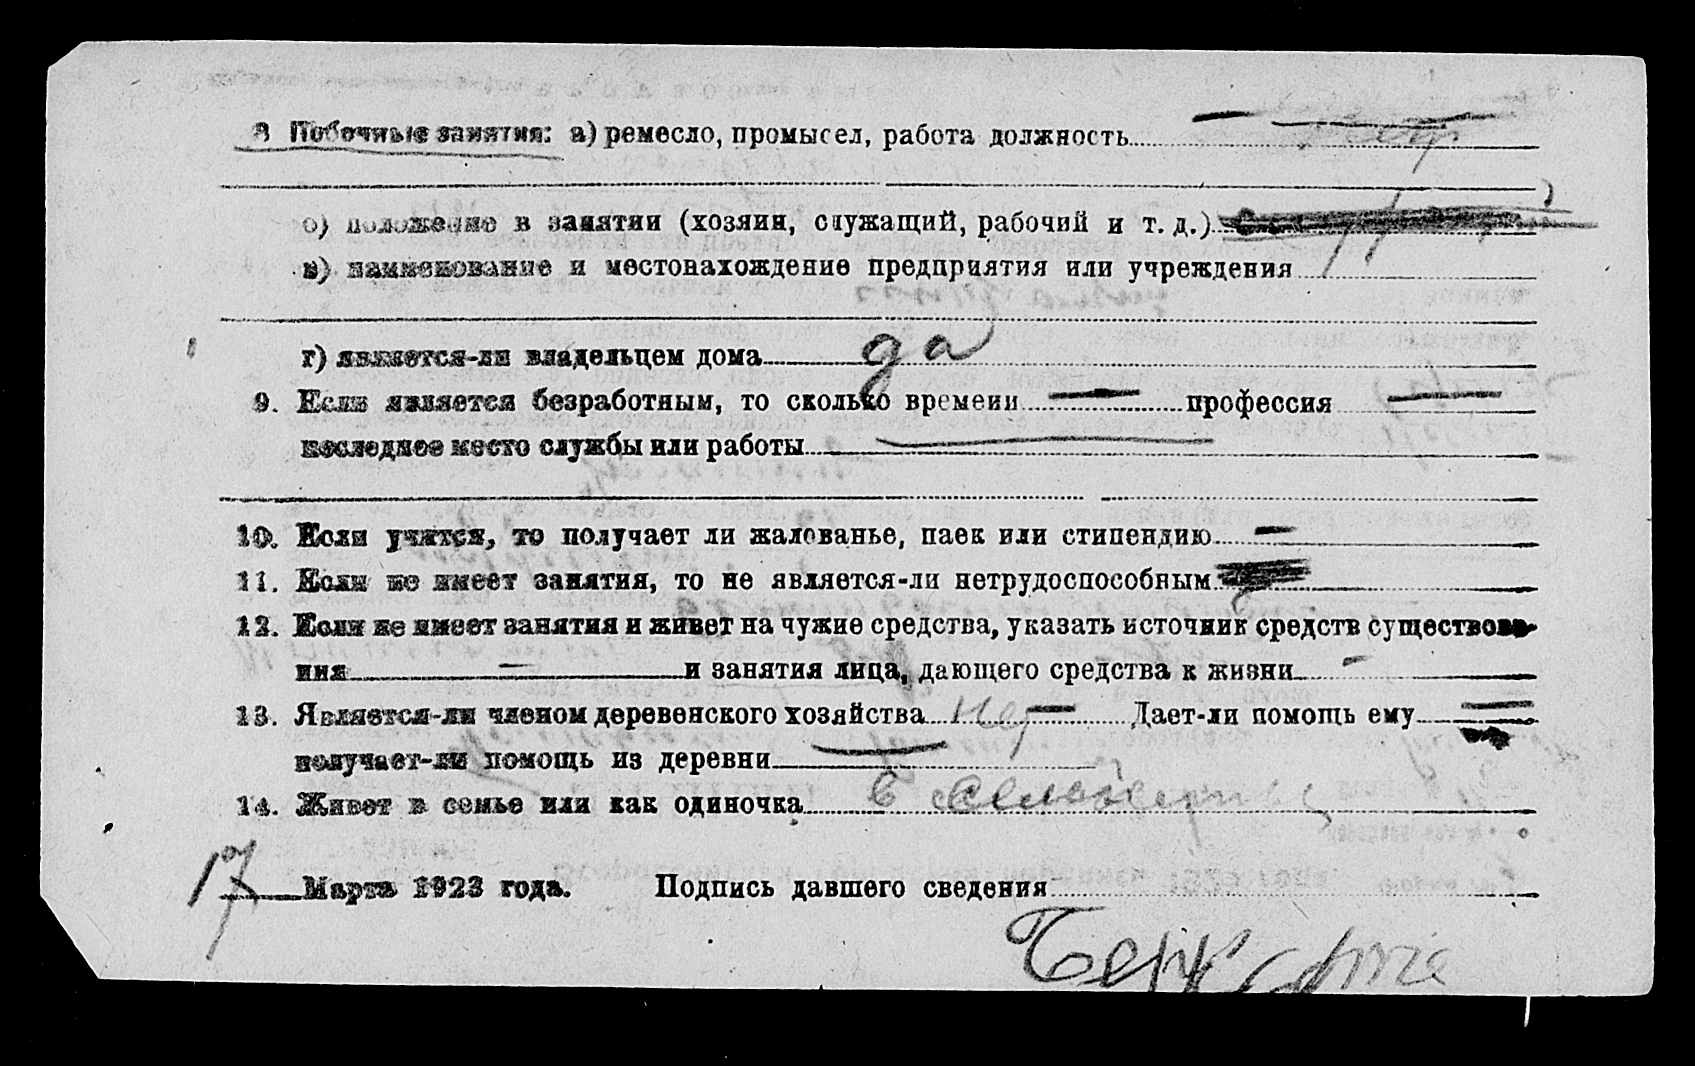 8 Побочные занятия: а) ремесло, промысел, работа должность
б) положение в занятии (хозяин, служащий, рабочий и т. д.)
в) наименование и местонахождение предприятия или учреждения
г) является-ли владельцем дома да
9. Если является безработным, то сколько времени — профессия —
последнее место службы или работы —
10. Если учится, то получает ли жалованье, паек или стипендию —
11. Если не имеет занятия, то не является-ли нетрудоспособным
12. Если не имеет занятия и живет на чужие средства, указать источник средств существова-
ния — и занятия лица, дающего средства к жизни —
13. Является-ли членом деревенского хозяйства нет — Дает-ли помощь ему —
получает-ли помощь из деревни —
14. Живет в семье или как одиночка в
17 Марта 1923 года. Подпись давшего сведения